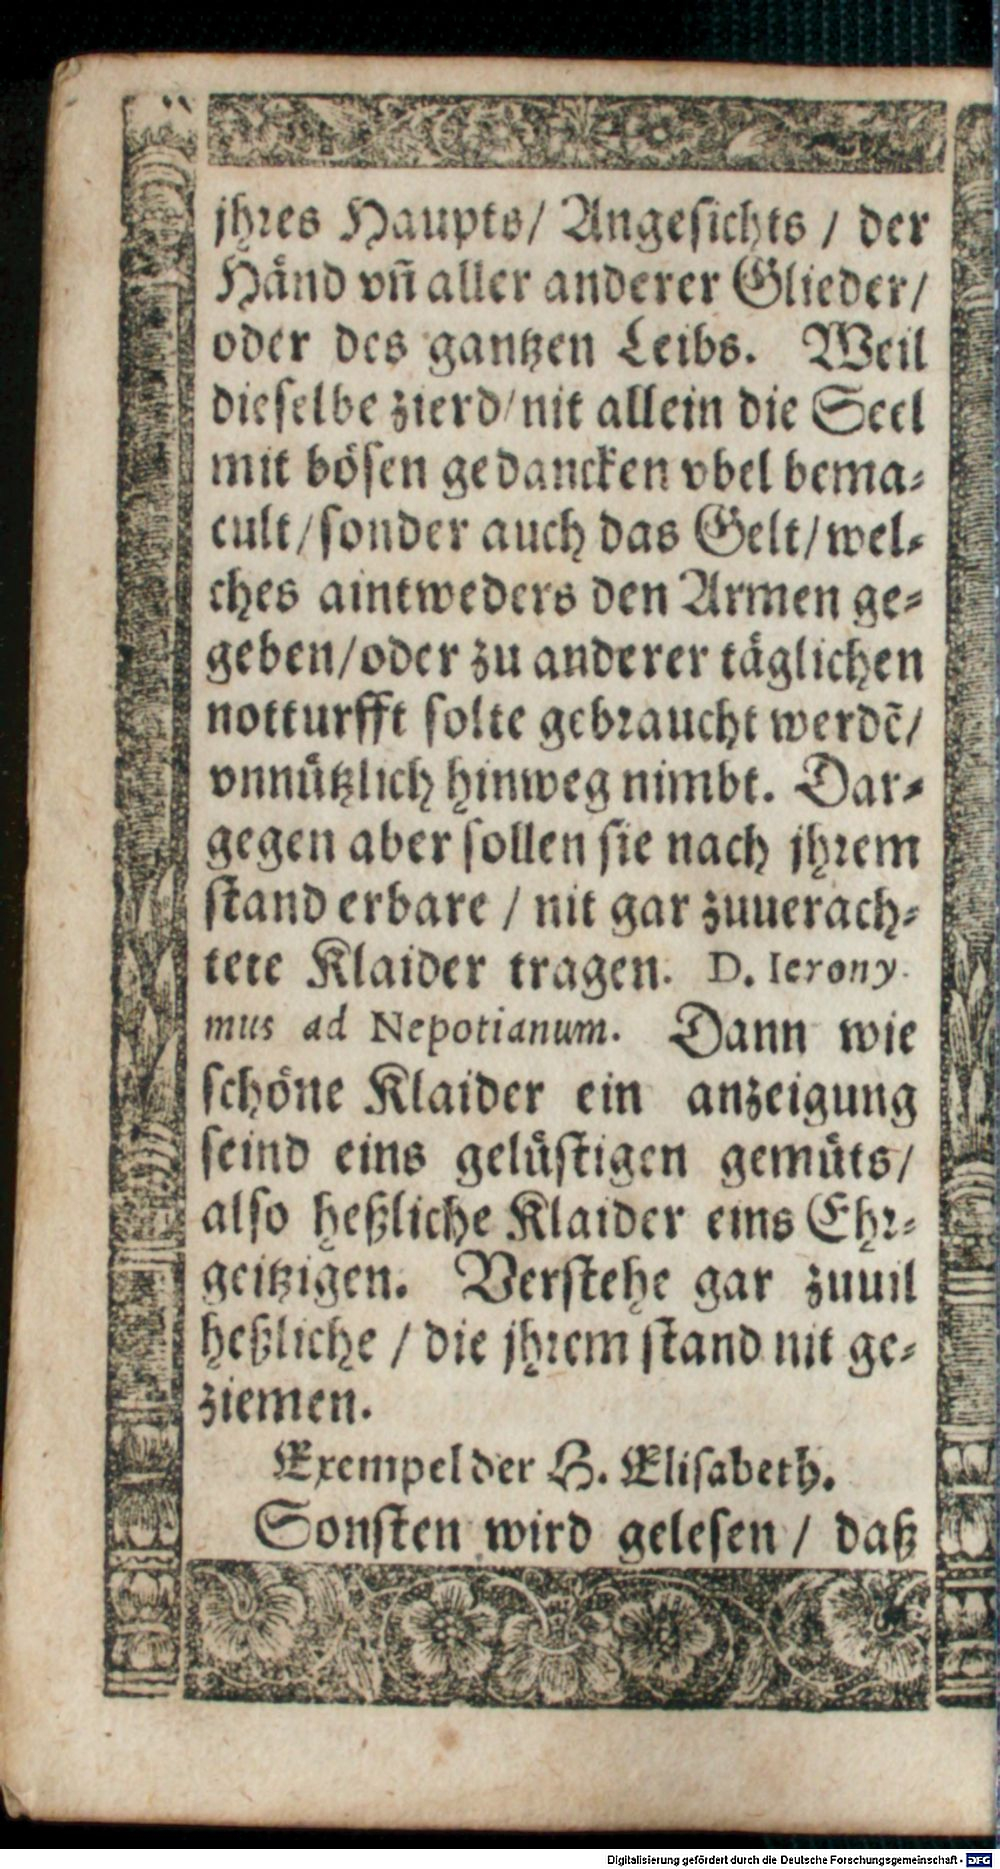 jhres Haupts/ Angesichts / der
Händ vñ aller anderer Glieder/
oder des gantzen Leibs. Weil
dieselbe zierd/nit allein die Seel
mit bösen gedancken vbel bema⸗
cult/sonder auch das Gelt/wel⸗
ches aintweders den Armen ge⸗
geben/oder zu anderer täglichen
notturfft solte gebraucht werdẽ/
vnnützlich hinweg nimbt. Dar⸗
gegen aber sollen sie nach jhrem
stand erbare / nit gar zuuerach⸗
tete Klaider tragen. D. Ierony-
mus ad Nepotianum. Dann wie
schöne Klaider ein anzeigung
seind eins gelüstigen gemüts/
also heßliche Klaider eins Ehr⸗
geitzigen. Verstehe gar zuuil
heßliche / die jhrem stand nit ge⸗
ziemen.
Exempel der H. Elisabeth.
Sonsten wird gelesen / daß
Digitalisierung gefördert durch die Deutsche Forschungsgemeinschaft - DFG